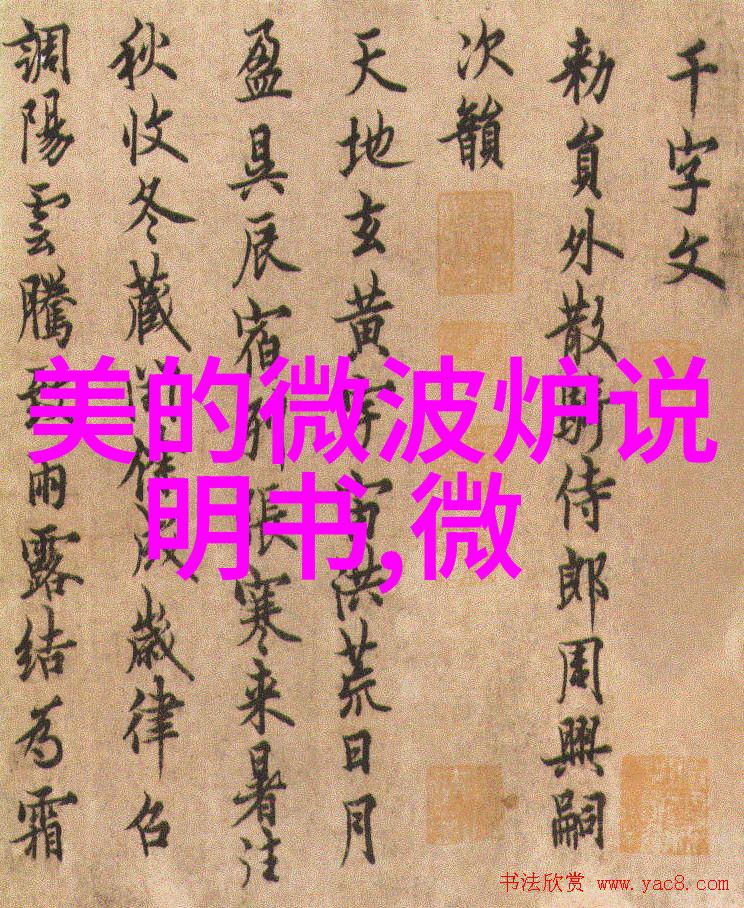 千字文
勅員外散騎侍郎周興嗣
次韻
天地玄黃宇宙洪荒日月
盈昃辰宿列張寒来暑往
秋收冬藏閏餘成歲律召
調陽雲騰致雨露結為霜
美的微波炉说
明书,微
书法欣赏 www.yac8.com